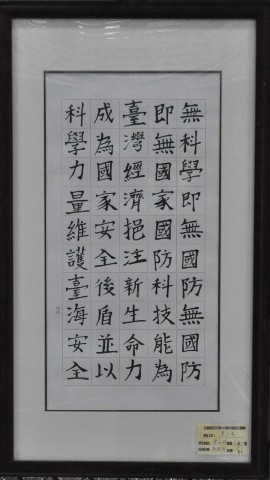 無科學即無國防無國防
即無國家國防科技能為
臺灣經濟挹注新生命力
成為國家安全後盾並以
科學力量維護臺海安全